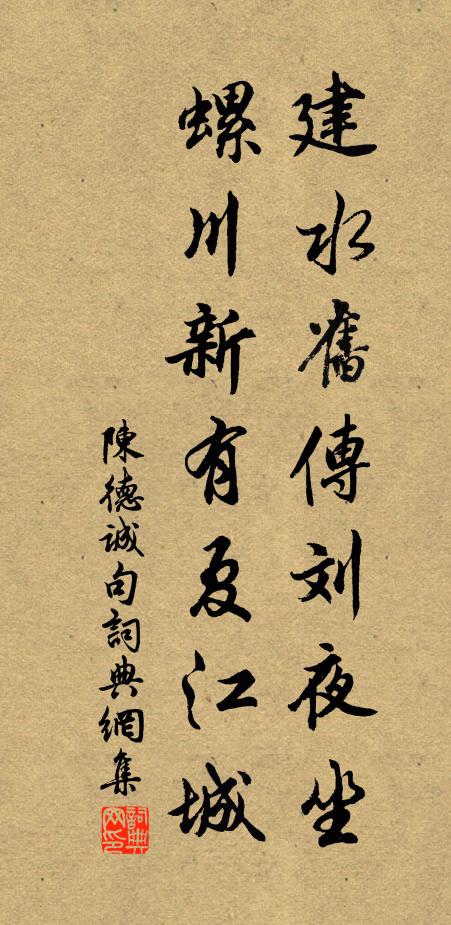 建水舊傳刘夜坐
螺川新有夏江城
陳德誠句詞典網集
詞典網印